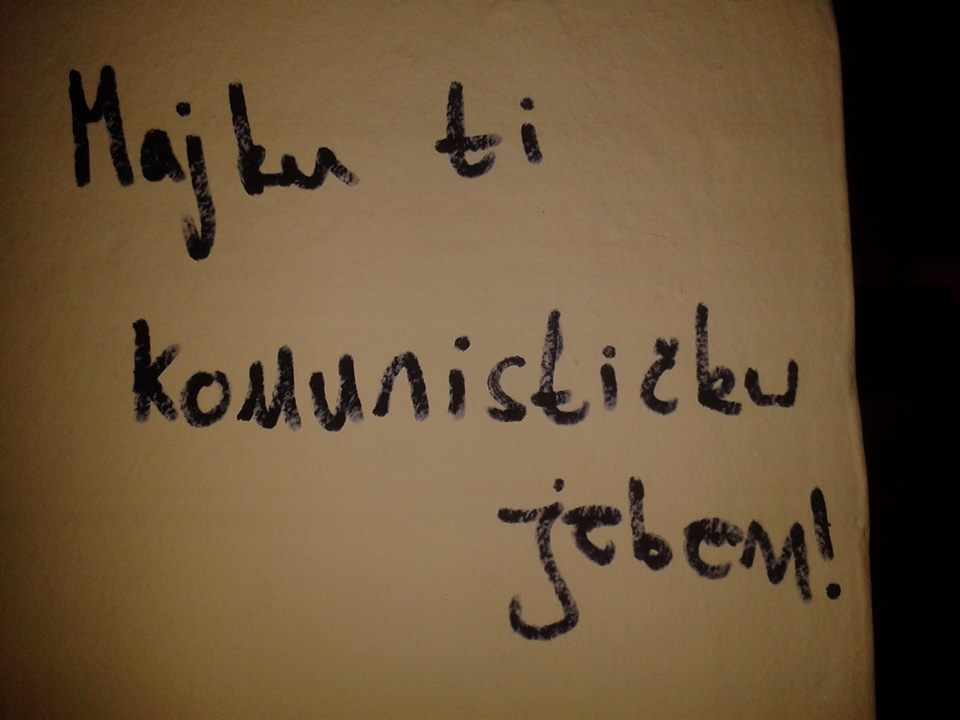 Majku ti
komunističku
jebem!